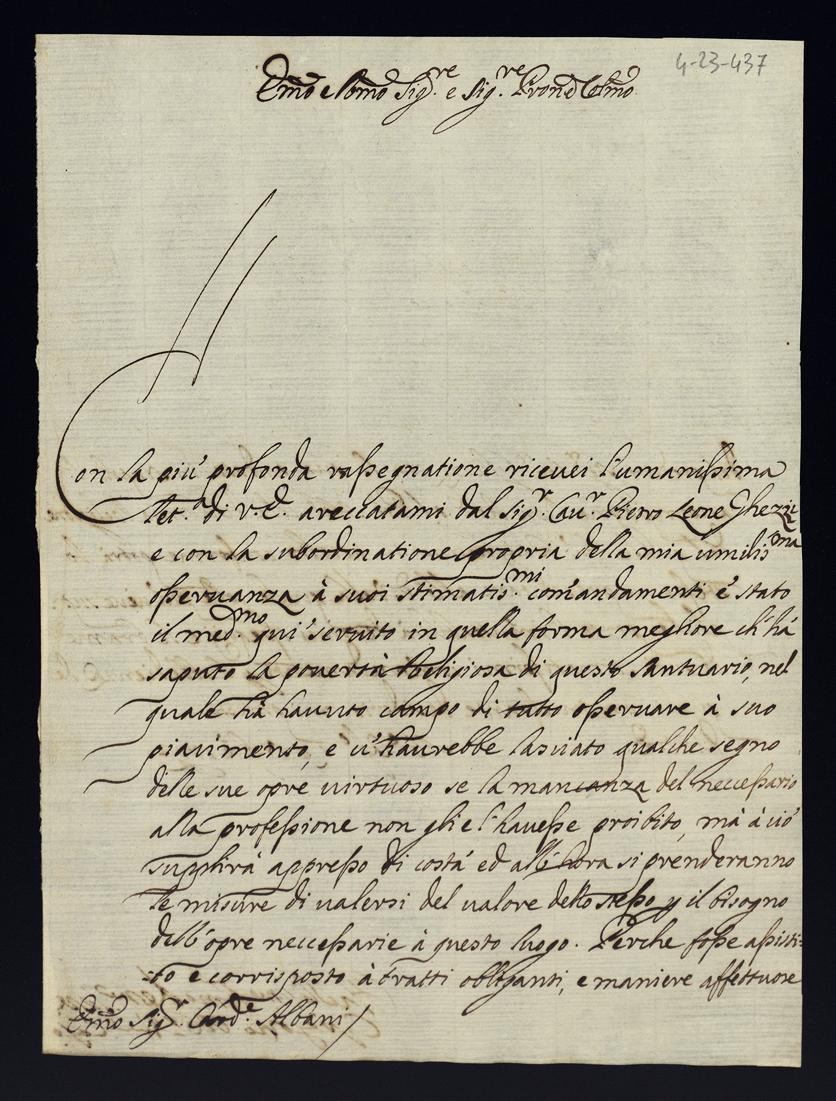 4-23-437
Em̃o e Rm̃o Sig.re e Sig.re Prone Colm̃o
Con la più profonda rassegnatione riceuei l'umanissima
let.a di V.E. areccatami dal Sig.r Cau.r Pietro Leone Ghezzi
e con la subordinatione propria della mia umilis.ma
osseruanza à suoi stimatis.mi com̃andamenti è stato
il med.mo qui seruito in quella forma megliore ch'hà
saputo la pouertà Religiosa di questo Santuario, nel
quale hà hauuto campo di tutto osseruare à suo
piacimento, e u'haurebbe lasciato qualche segno
delle sue opre uirtuoso se la mancanza del neccessario
alla professione non gli e l'hauesse proibito, mà à ciò
supplirà appresso di costà ed all'hora si prenderanno
le misure di ualersi del ualore dello stesso p il bisogno
dell'opre neccessarie à questo luogo. Perche fosse assisti-
-to e corrisposto à tratti obliganti, e maniere affettuose
Em̃o Sig.r Card.e Albani